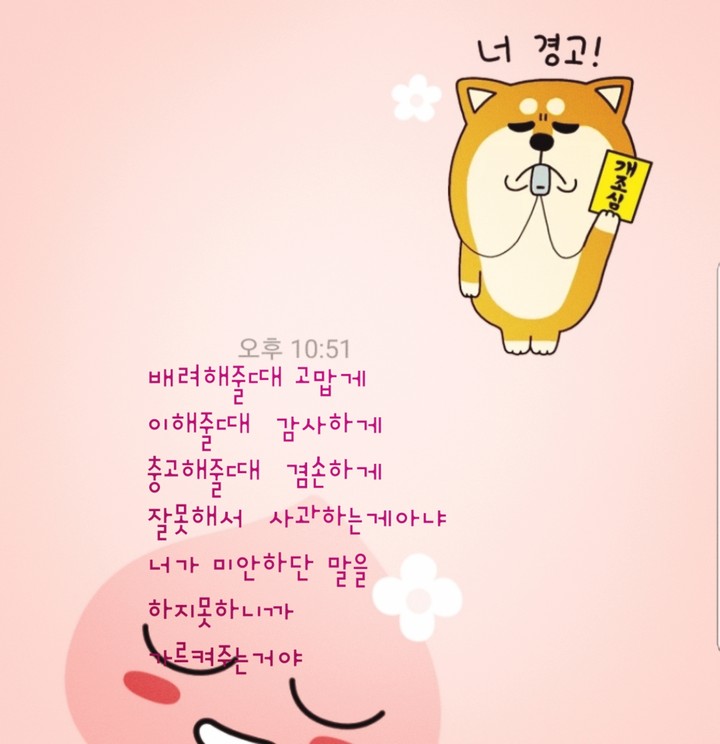 너 경고!
개
조
심
오후 10:51
배려해줄때 고맙게
이해줄때 감사하게
충고해줄때 겸손하게
잘못해서 사과하는게아냐
너가 미안하단 말을
하지못하니까
가르켜주는거야